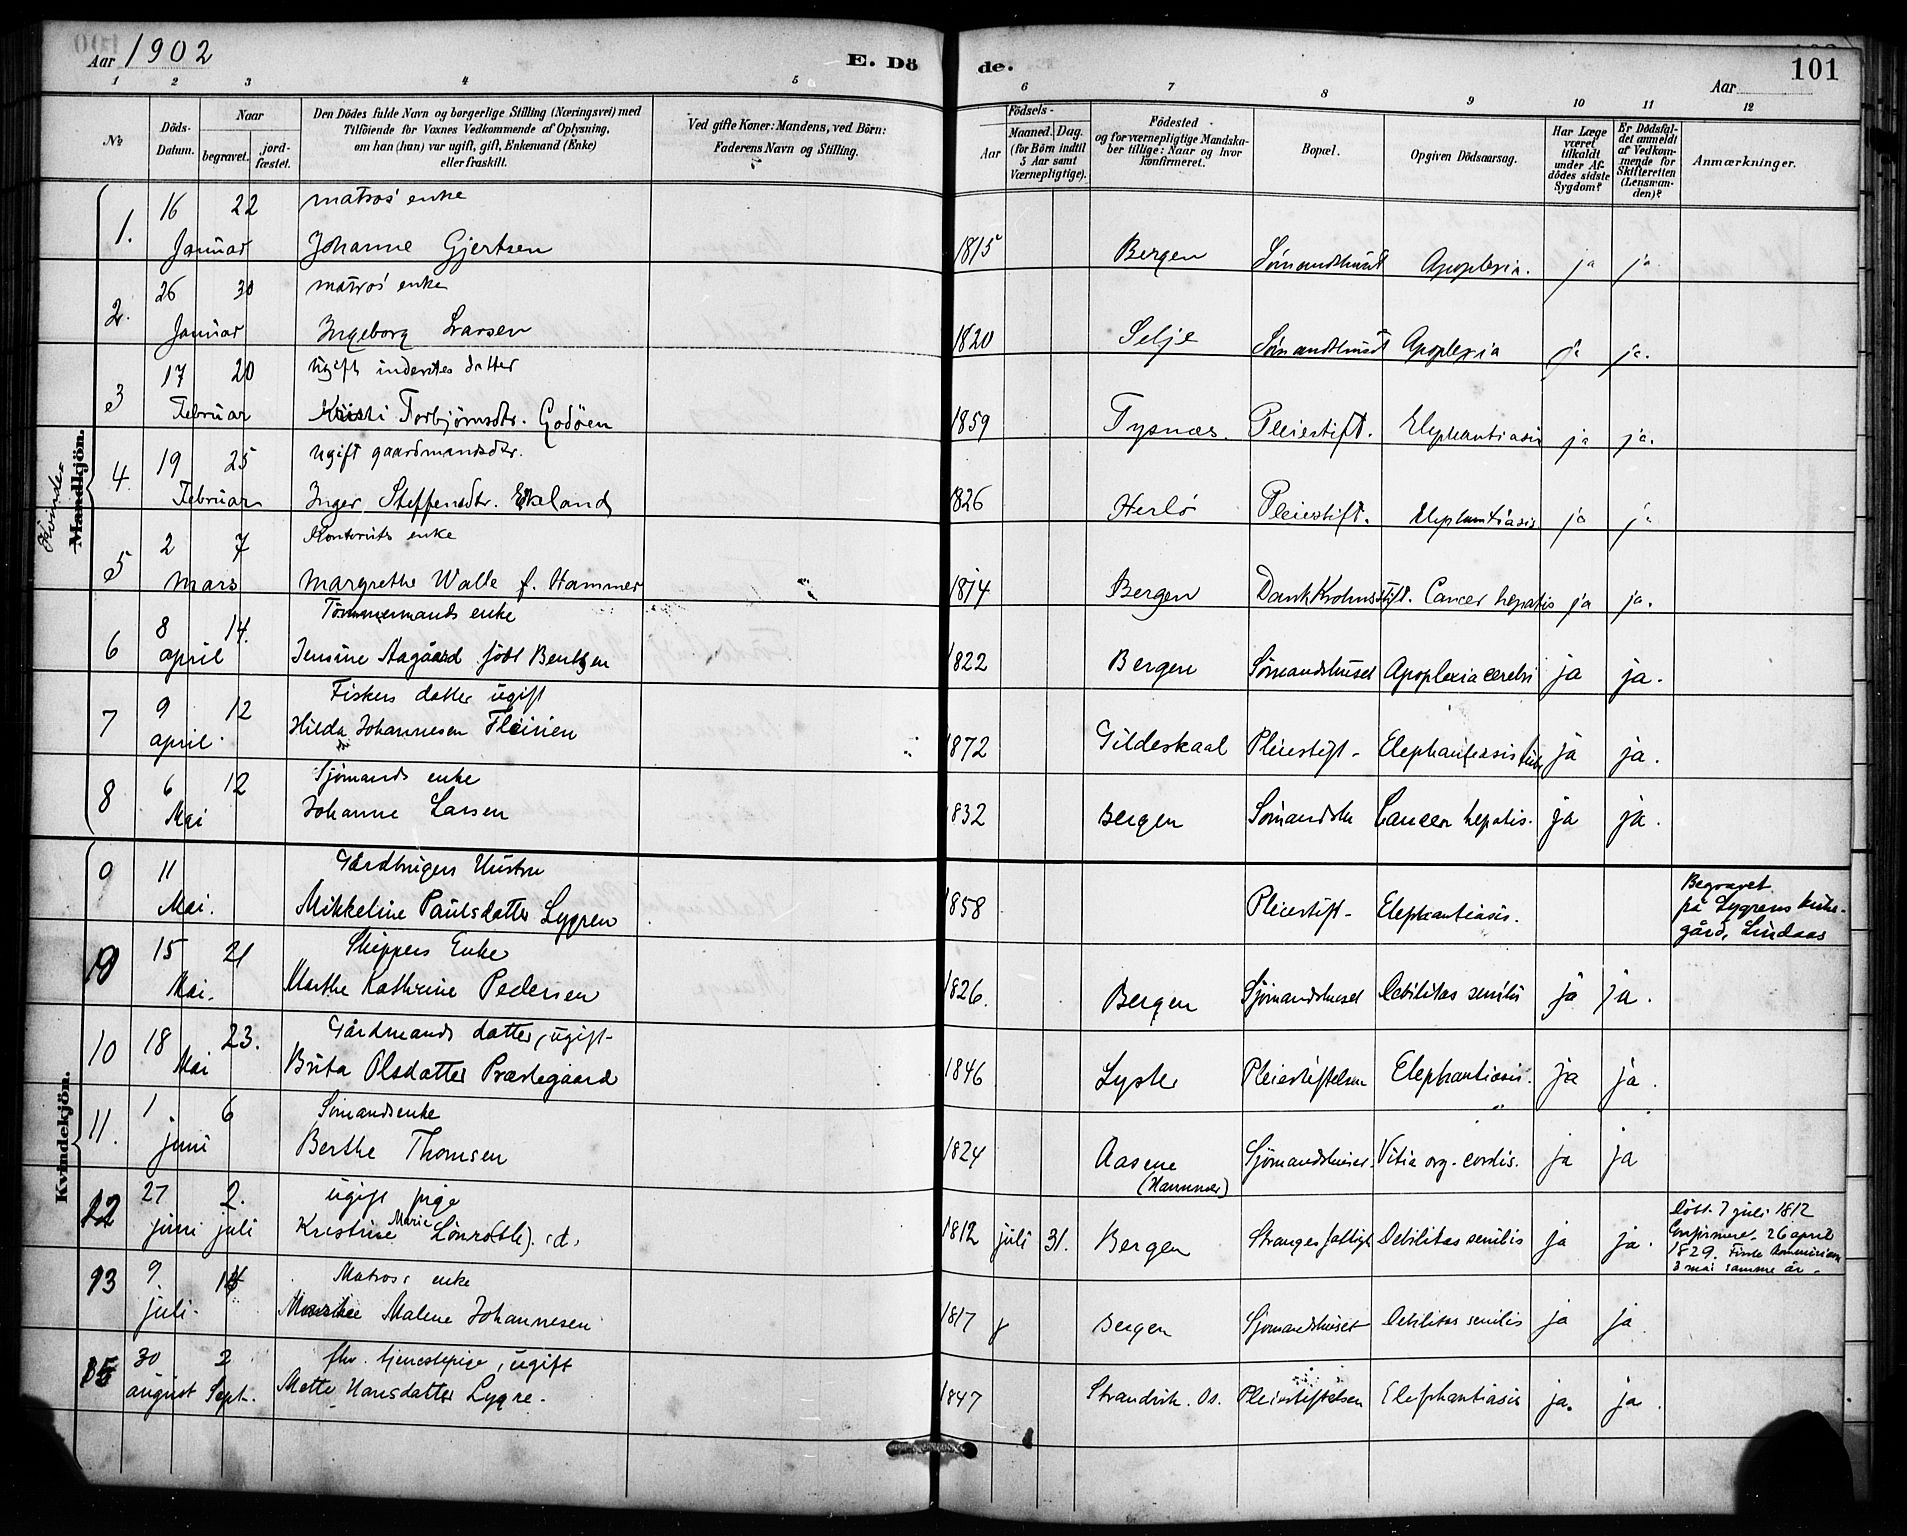 Aar 1902
E. Dö
de.
Aar
101
1 2 3 4 5 6 7 8 9 10 11 12
No
Döds-
Datum.
Naar
begravet.
jord-
fæstet.
Den Dödes fulde Navn og borgerlige Stilling (Næringsvei) med
Tilföiende for Voxnes Vedkommende af Oplysning,
om han (hun) var ugift, gift, Enkemand (Enke)
eller fraskilt.
Ved gifte Koner: Mandens, ved Börn:
Faderens Navn og Stilling.
Födsels-
Aar
Maaned. Dag.
(for Börn indtil
5 Aar samt
Værnepligtige).
Födested
og for værnepligtige Mandska-
ber tillige: Naar og hvor
konfirmeret.
Bopæl.
Opgiven Dödsaarsag.
Har Læge
været
tilkaldt
under Af-
dödes sidste
Sygdom?
Er Dödsfal-
det anmeldt
af Vedkom-
mende for
Skifteretten
(Lensman-
den)?
Anmærkninger.
Kvinder
Mandkjön.
16 22 matros' enke
1. Januar Johanne Gjertsen 1815 Bergen Sömandshuset Apoplexia. ja ja.
26 30 matros' enke
2. Januar Ingeborg Larsen 1820 Selje Sömandshuset Apoplexia ja ja.
17 20 ugift inderstes datter
3 Februar Kristi Torbjörnsdtr. Godöen 1859 Tysnæs. Pleiestift. Elephantiasis ja ja.
19 25 ugift gaardmandsdtr.
4. Februar Inger Steffensdtr. Ekeland 1826 Herlö Pleiestift. Elephantiasis ja ja
2 7 Kontorists enke
5 Mars Margrethe Walle f. Hammer 1814 Bergen DankKrohnsstift. Cancer hepatis ja ja.
8 14. Tömmermands enke
6 april Jensine Aagaard född Bentzen 1822 Bergen Sømandshuset Apoplexia cerebri ja ja.
9 12 Fiskers datter ugift
7 april Hilda Johannesen Fleinen 1872 Gildeskaal Pleiestift - Elephantiasis ja ja.
6 12 Sjömands enke
8 Mai Johanne Larsen 1832 Bergen Sömandshu Cancer hepatis. ja ja.
Kvindekjön.
9 11 Gårdbrugers Hustru
Mai. Mikkeline Paulsdatter Lygren 1858 Pleiestift - Elephantiasis.
Begravet
på Lygrens kirke-
gård, Lindaas
15 21 Skippers Enke
10 Mai. Marthe Kathrine Pedersen 1826. Bergen Sjömandshuset Debilitas senilis ja ja.
18 23. Gårdmands datter, ugift-
10 Mai Brita Olsdatter Præstegaard 1846 Lyster Pleiestiftelsen Elephantiasis. ja ja.
1. 6 Sömandsenke
11. juni Berthe Thomsen 1824 Aasene Sjömandshuset. Vitia org. cordis. ja ja
(Hammer)
27 2. ugift pige
12 juni juli Kristine Marie Lönroth). d. 1812 juli 31. Bergen Stranges fattigh Debilitas senilis ja ja.
Döbt. 7 juli 1812
Confirmere. 26 april
1829. Første kommunion
3 mai samme år.
9. 14 Matros's enke
13 juli. Malene Johannesen 1817 Bergen Sjömandshuset Debilitas senilis ja ja
30 2 fhv. tjenestepige, ugift
15 august Sept. Mette Hansdatter Lygre. 1847 Strandvik. Os. Pleiestiftelsen Elephantiasis ja. ja.